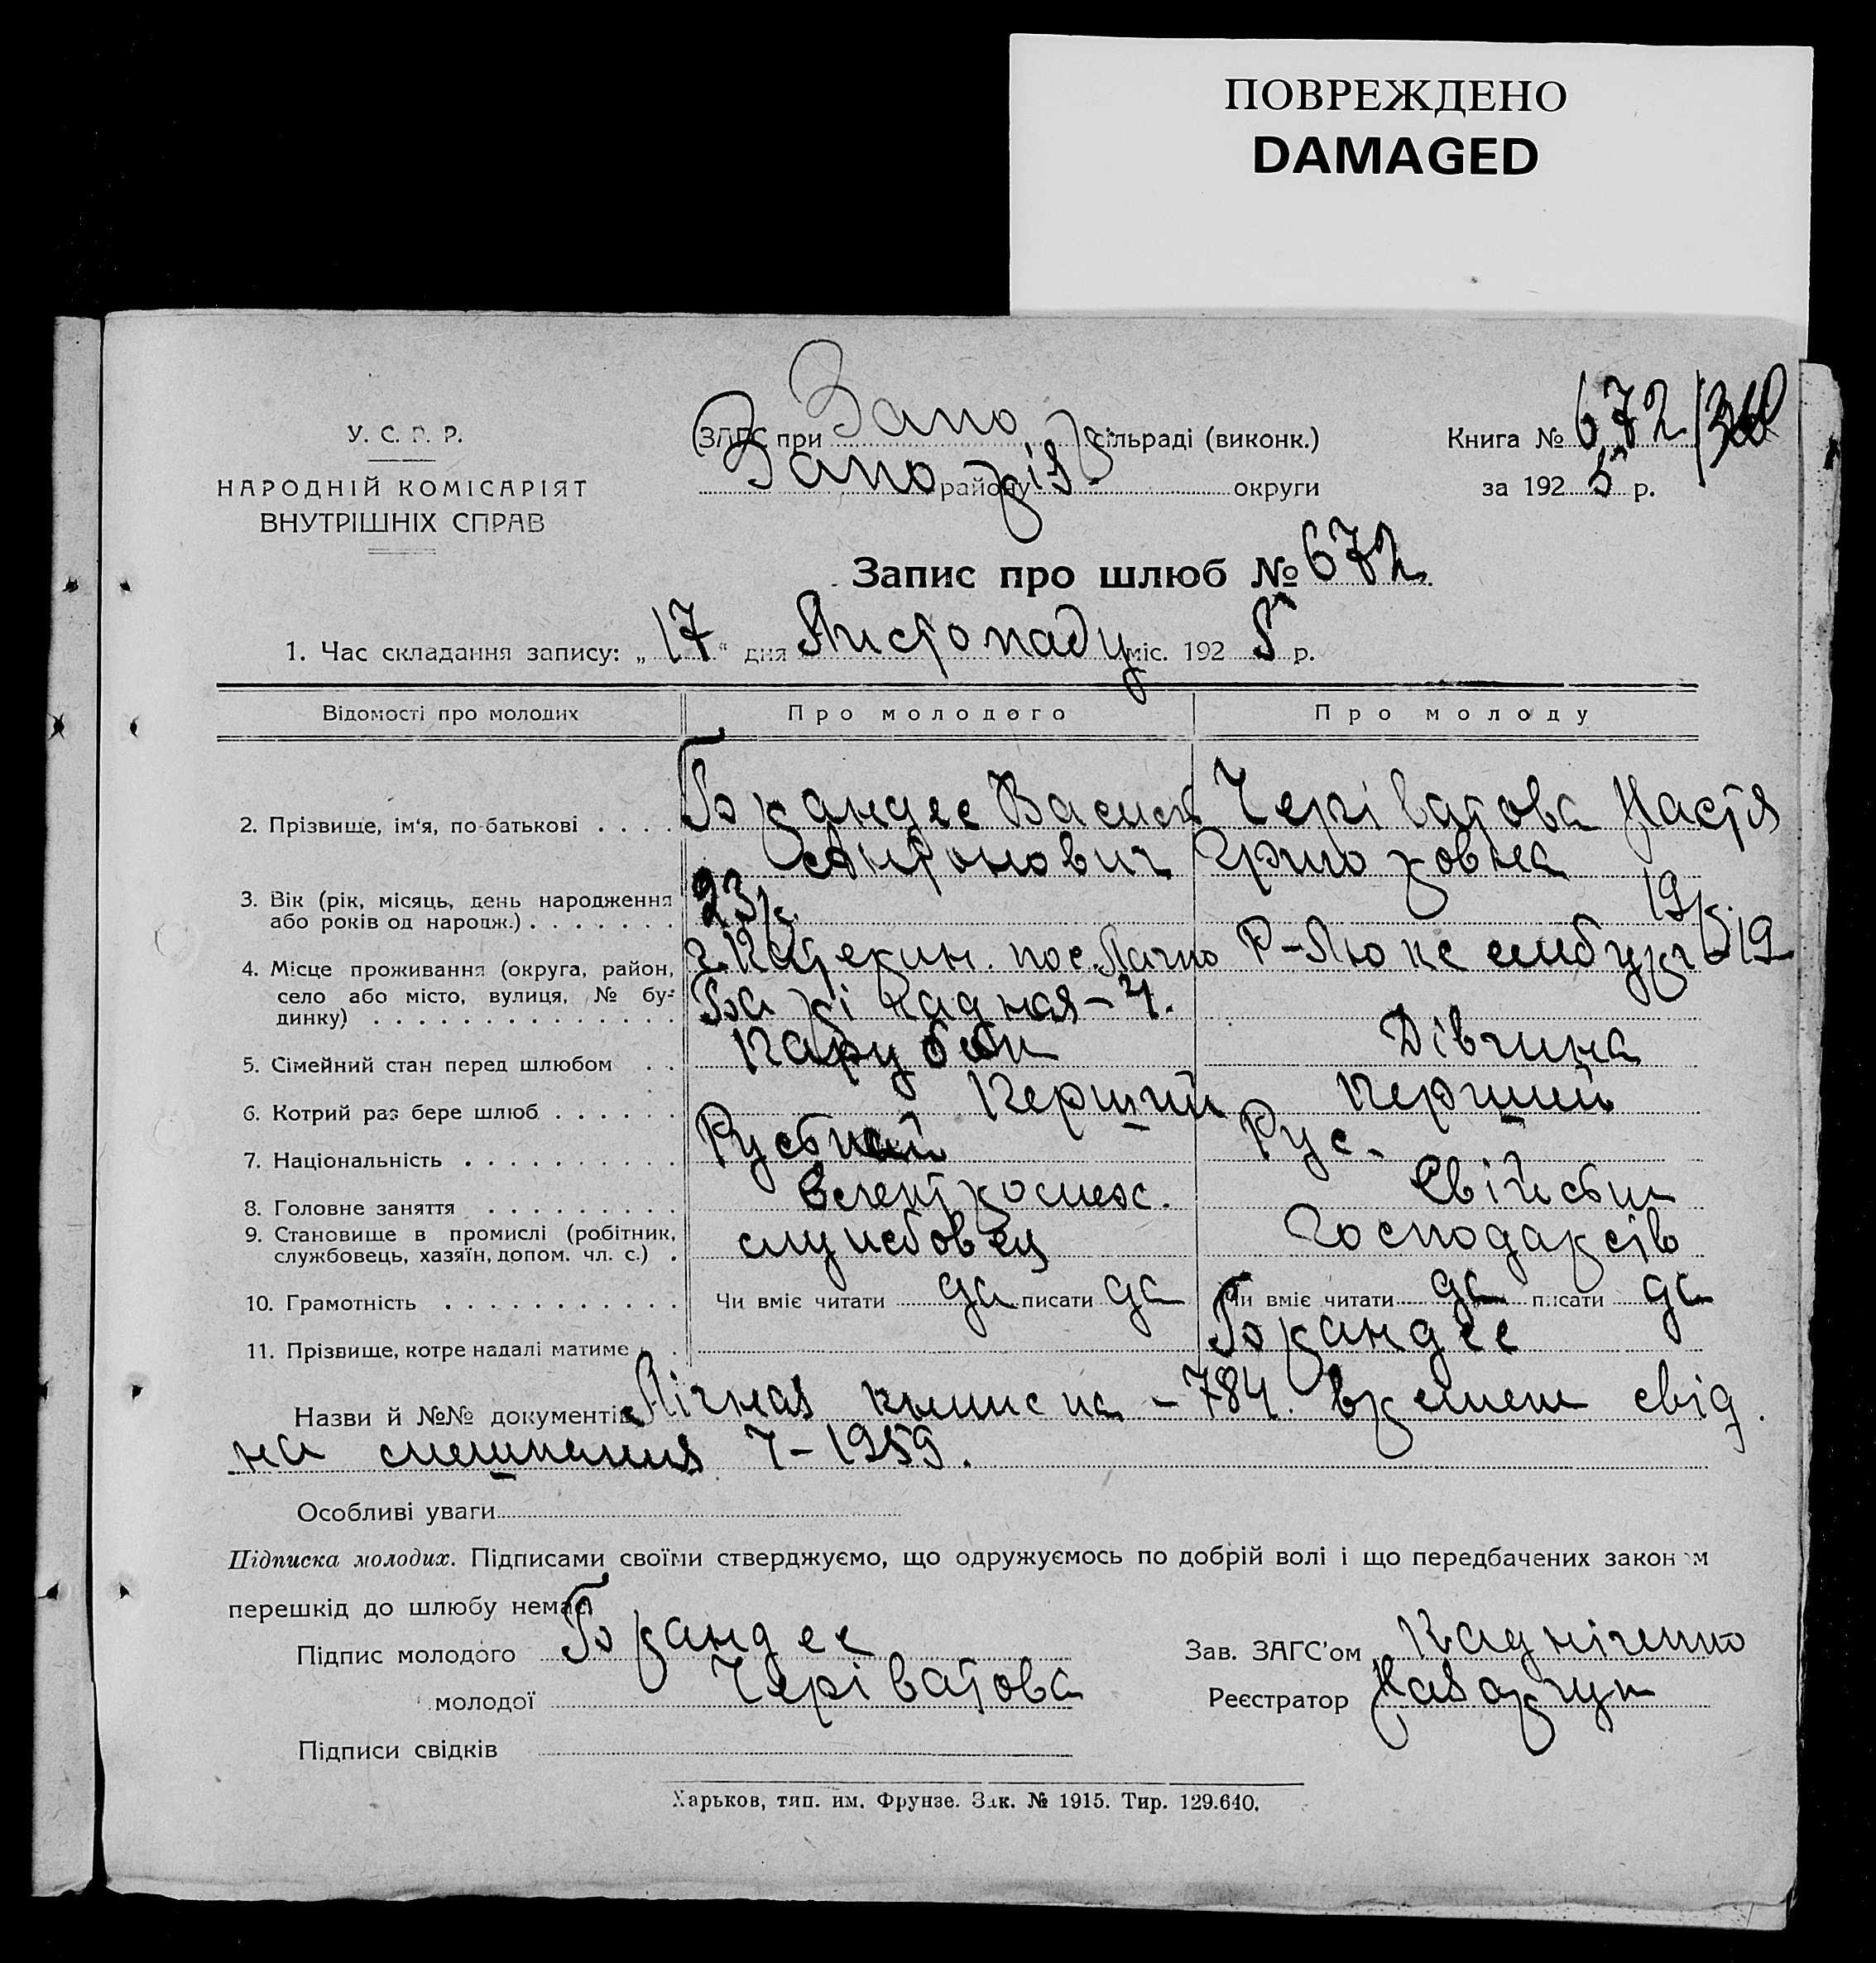 ПОВРЕЖДЕНО
DAMAGED
У. С. Р. Р.
НАРОДНІЙ КОМІСАРІЯТ
ВНУТРІШНІХ СПРАВ
ЗАГС при Запор сільраді (виконк.)
Запоріз. району округи
Книга № 672
за 1925 р.
Запис про шлюб № 672
1. Час складання запису: „17“ дня Листопаду міс. 1925 р.
Відомості про молодих Про молодого Про молоду
2. Прізвище, ім‘я, по-батькові . . . . Брандес Василь Черіватова Настя
Антонович Григоровна
3. Вік (рік, місяць, день народження
або років од народж.) . . . . . . . 23 р. 19 р.
4. Місце проживання (округа, район,
село або місто, вулиця, № бу-
динку) . . . . . . . . . . . . . . .
г. Катекин. пос. Р-Люксембург 19
4.
5. Сімейний стан перед шлюбом . . Парубок Дівчина
6. Котрий раз бере шлюб . . . . . . Перший Перший
7. Національність . . . . . . . . . . Руський Рус.
8. Головне заняття . . . . . . . . . Електромех. Свійськ
9. Становище в промислі (робітник,
службовець, хазяїн, допом. чл. с.) . службовец Господарсів
10. Грамотність . . . . . . . . . . . Чи вміє читати да писати да Чи вміє читати да писати да
11. Прізвище, котре надалі матиме . . Брандес
Назви й №№ документів Лічная книжка - 784. времен свід.
на 7-1959.
Особливі уваги
Підписка молодих. Підписами своїми стверджуємо, що одружуємось по добрій волі і що передбачених законом
перешкід до шлюбу немає.
Підпис молодого Брандес
молодої Черіватова
Підписи свідків
Зав. ЗАГС‘ом Кадніченко
Реєстратор Назарчук
Харьков, тип. им. Фрунзе. Зак. № 1915. Тир. 129.640.